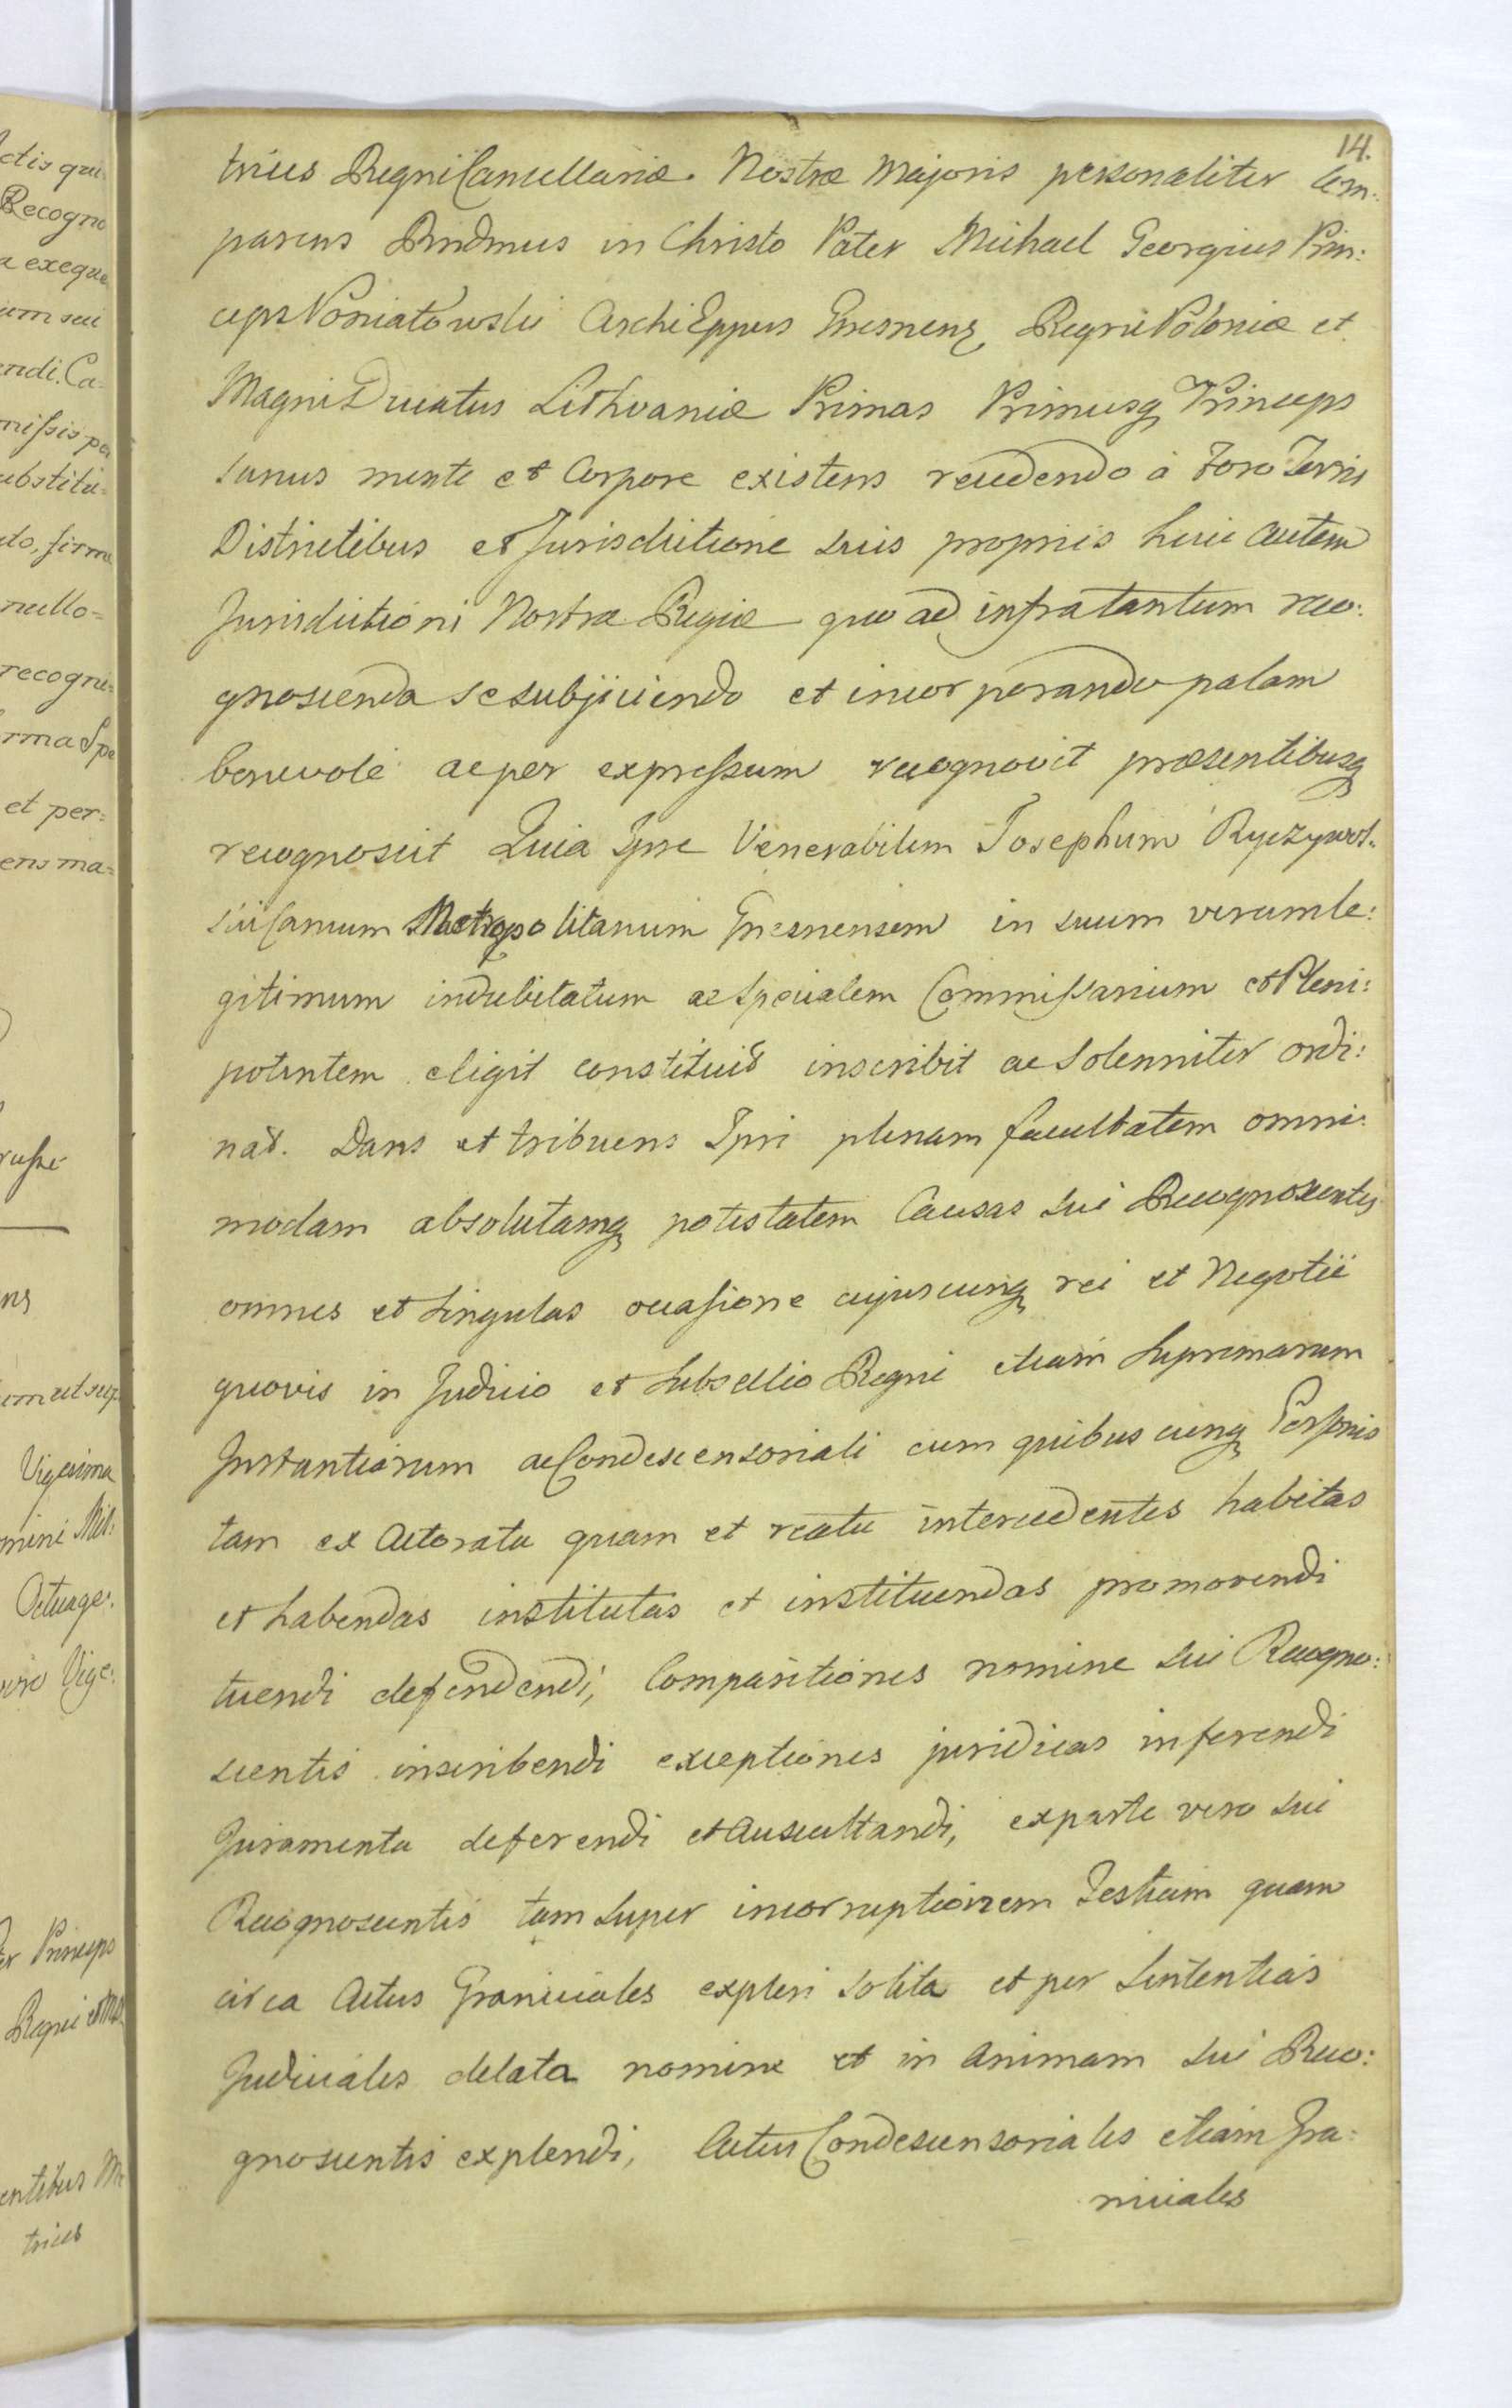 14.
trices Regni Cancellariæ Nostræ Majoris personaliter Com:
parens Rndmus in Christo Pater Michael Georgius Prin:
ceps Poniatowski ArchiEppus Gnesnens, Regni Poloniæ et
Magni Ducatus Lithvaniæ Primas Primusq, Princeps
sanus mente et Corpore existens recedendo à Foro Terris
Districtibus et Jurisdictione suis propriis huic autem
Jurisdictioni Nostræ Regiæ quo ad infra tantum reco:
gnoscenda se subjiciendo et incorporando palam
benevole ac per expressum recognovit præsentibusq
recognoscit Quia Ipse Venerabilem Josephum Ryczywol:
ski Canum Metropolitanum Gnesnensem in suum verum le:
gitimum indubitatum ac Specialem Commissarium et Pleni:
potentem eligit constituit inscribit ac Solenniter ordi:
nat. Dans et tribuens Ipsi plenam facultatem omni:
modam absolutamq, potestatem Causas sui Recognoscentis
omnes et singulas occasione cujuscunq, rei et Negotii
quovis in Judicio et Subsellio Regni etiam Supremarum
Instantiarum ac Condescensoriali cum quibuscunq Personis
tam ex Actoratu quam et reatu intercedentes habitas
et habendas institutas et instituendas promovendi
tuendi defendendi, Comparitiones nomine sui Recogno:
scentis inscribendi exceptiones juridicas inferendi
Juramenta deferendi et Auscultandi, ex parte vero sui
Recognoscentis tam super incorruptionem Testium quam
circa Actus Graniciales expleri solita et per Sententias
Judiciales delata nomine et in Animam sui Reco:
gnoscentis explendi, Actus Condescensoriales etiam Gra:
niciales